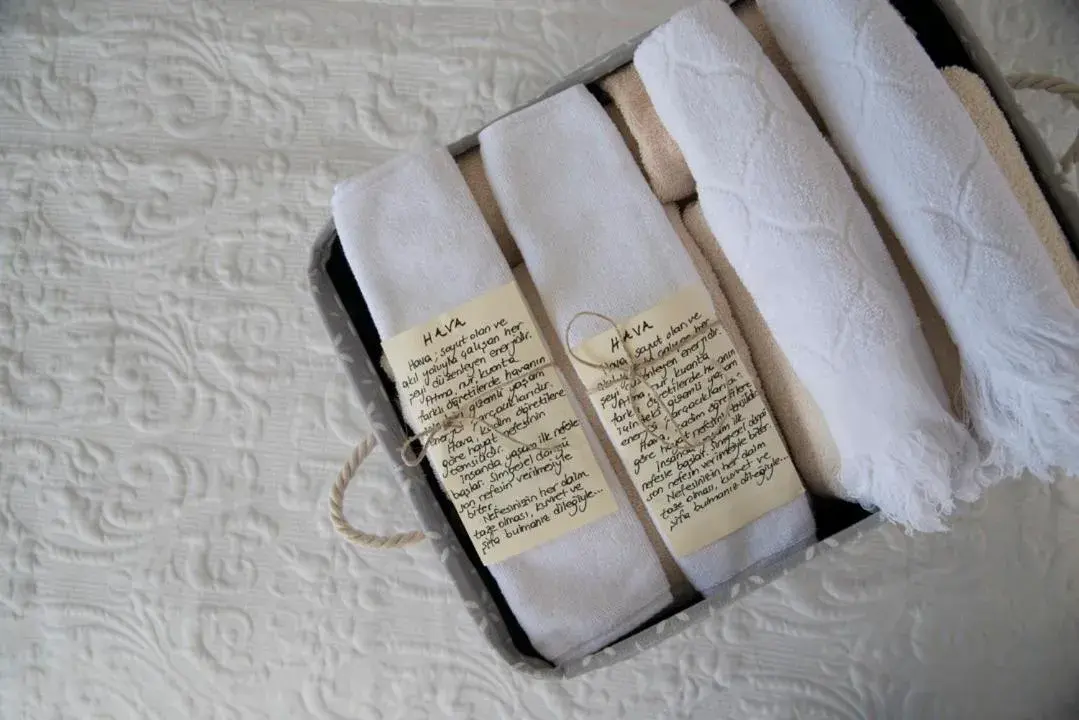 HAVA
Hava; soyut olan ve
akıl yoluyla çalışan her
şeyi düzenleyen enerjidir.
Atma, nur, kuanta
farklı öğretilerde havanın
gizemli yaşam
enerji parçacıklarıdır.
Hava, kadim öğretilere
göre hayat nefesinin
temsilidir.
İnsanda yaşam ilk nefesle
başlar. Simgesel döngü
son nefesin verilmesiyle
biter.
Nefesinizin her daim
taze olması, kuvvet ve
şifa bulmanız dileğiyle...
HAVA
Hava, soyut olan ve
akıl yoluyla çalışan her
şeyi düzenleyen enerjidir.
Atma, nur, kuanta
farklı öğretilerde havanın
gizemli yaşam
enerji parçacıkları
Hava, kadim öğretilere
göre hayat nefesinin
İnsanda yaşam ilk
nefesle başlar. Simgesel döngü
son nefesin verilmesiyle biter.
Nefesinizin her daim
taze olması, kuvvet ve
şifa bulmanız dileğiyle...